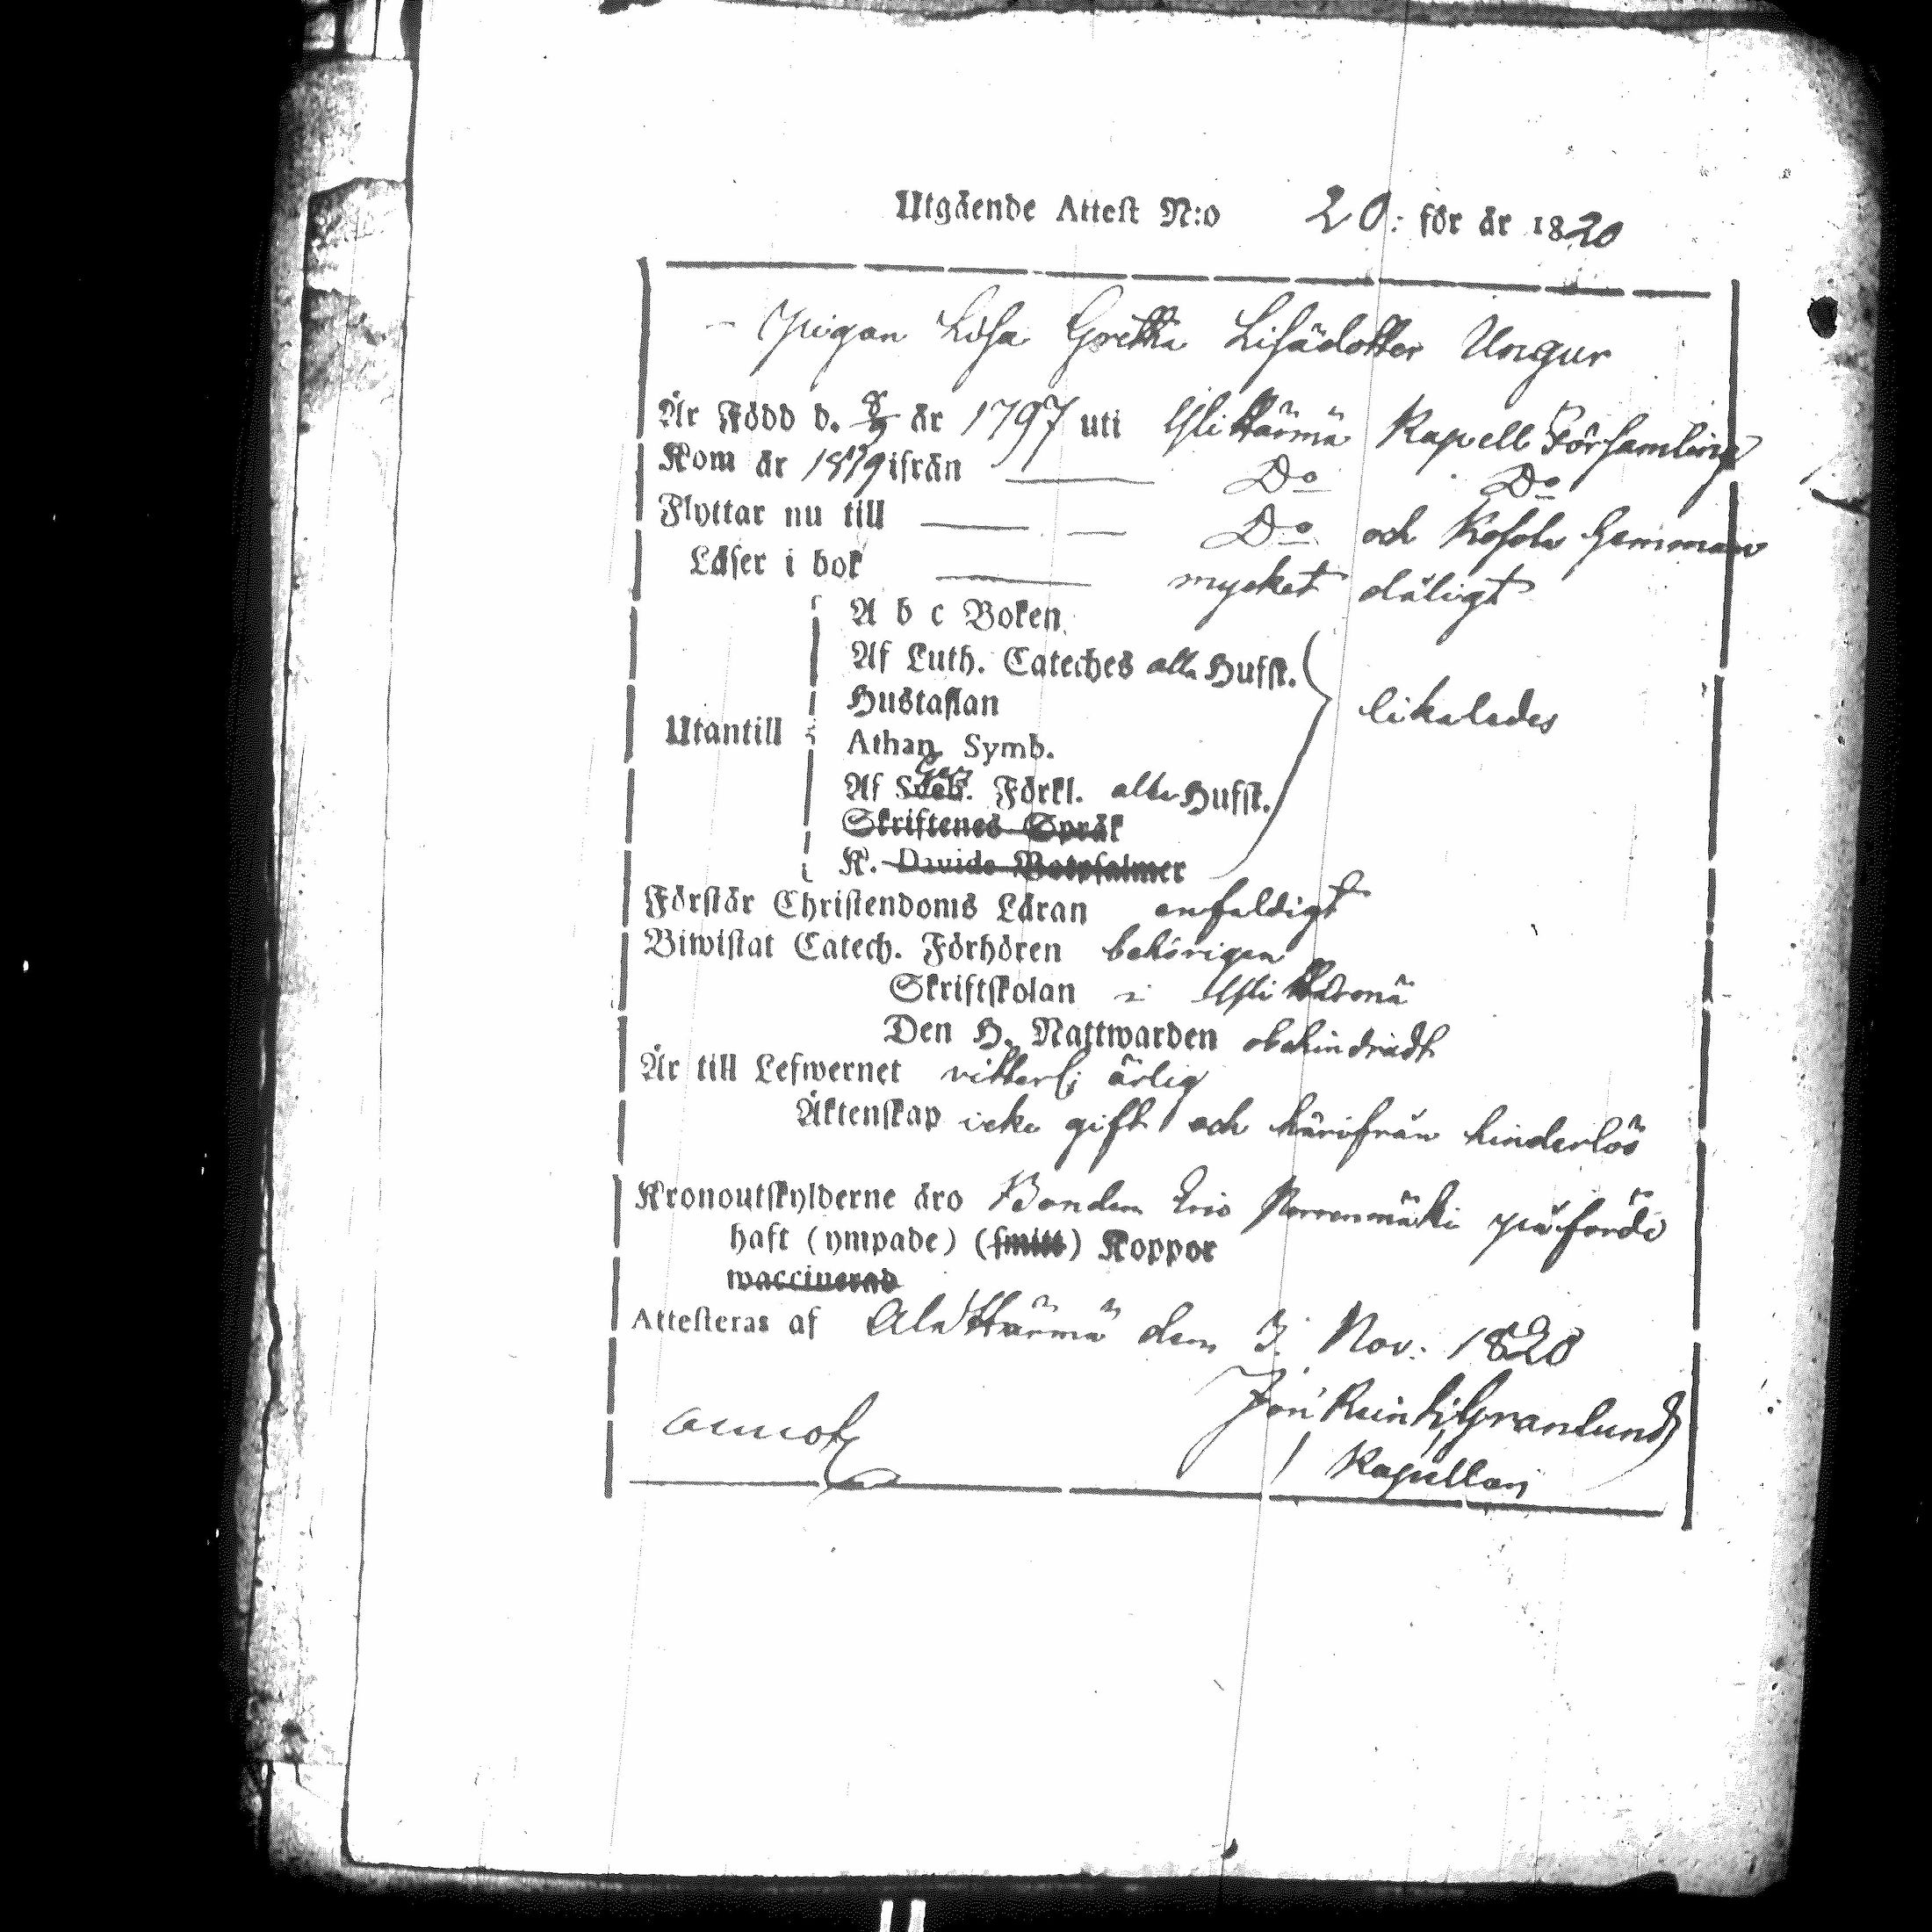 Utgående Attest N:o 20: för år 1820
Pigan Lisa Gretha Lisädotter Ungur
Är Född d. 8/9 år 1797 uti Ylihärmä Kapell Församling
Kom år 1819 ifrån Do Do
Flyttar nu till Do och Kosola Hemman
Läser i bok mycket dåligt
A b c Boken
Af Luth. Cateches alla Hufst.
Hustaflan likaledes
Utantill
Athan. Symb.
Af Sveb. Förkl. alla Hufst.
Skriftenes Språk
K. Davids Botpsalmer
Förstår Christendoms Läran enfaldigt
Biwistat Catech. Förhören behörigen
Skriftskolan i Ylihärmä
Den H. Nattwarden obehindradt
Är till Lefwernet vitterl: ärlig
Äktenskap icke gift och härifrån hinderlös
Kronoutskylderne äro Bonden Eric påförde
haft (ympade) (smitt) Koppor
waccinerad
Attesteras af Alahärmä den 3 Nov: 1820
Granlund
Kapellan
annot